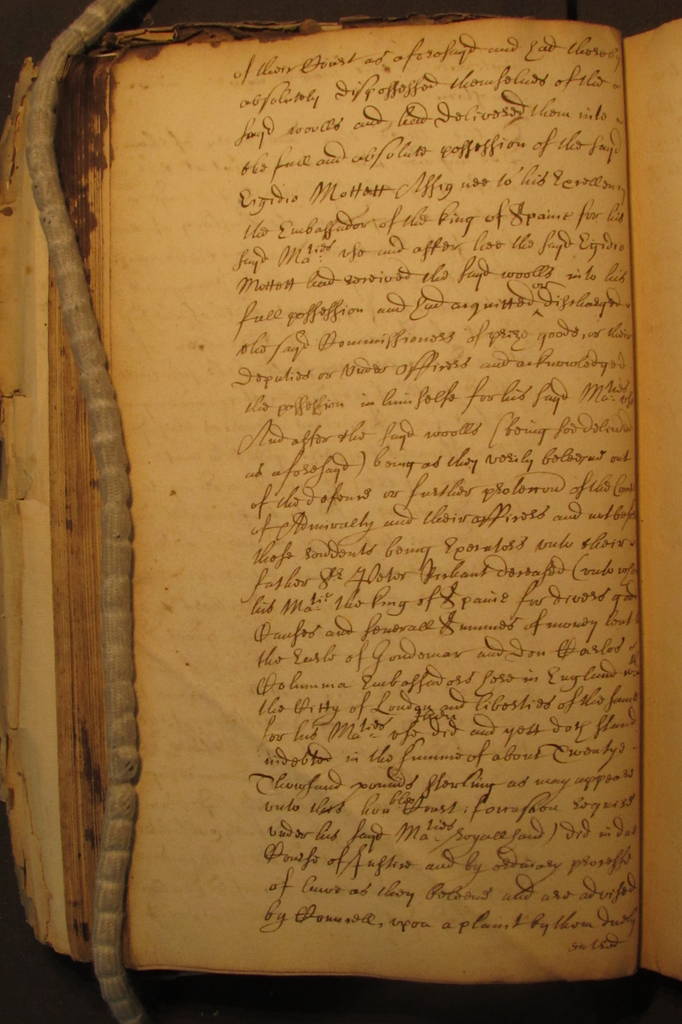 of their Court as aforesayd and had thereby
absolutely dispossessed themselues of the
sayd woolls and had delivered them into
the full and absolute possession of the sayd
Egidio Mottett Assignee to his Excellency
the Embassador of the king of Spaine for his
sayd Ma:ties vse and after hee the sayd Egidio
Mottett had received the sayd woolls into his
full possession and had acquitted or discharged
the sayd Commissioners of prize goods, or their
deputies or vnder officers and acknowledged
the possession in himselfe for his sayd Ma:ties vse
And after the sayd woolls (being soe delivered
as aforesayd) being as they verily beleeve out
of the defence or further protection of the Court
of Admiralty and their officers and not before
these rendents being Executors vnto their
father Sr. Peter Ricaut deceased (vnto whome
his Ma:tie the king of Spaine for divers good
Causes and severall Summes of money lent
the Earle of Gondemar and Don Carlos de
Columma Embassadors here in England in
the Citty of London and liberties of the same
for his Ma:ties vse did and yett doth stand
indebted in the summe of about Twentye
Thowsand pounds sterling as may appeare
vnto this hon:ble Court if occasion require
vnder his sayd Ma:ties royall hand) did in due
Course of Justice and by ordinary processe
of lawe as they beleeve and are advised
by Councell, vpon a plaint by them duely
entred